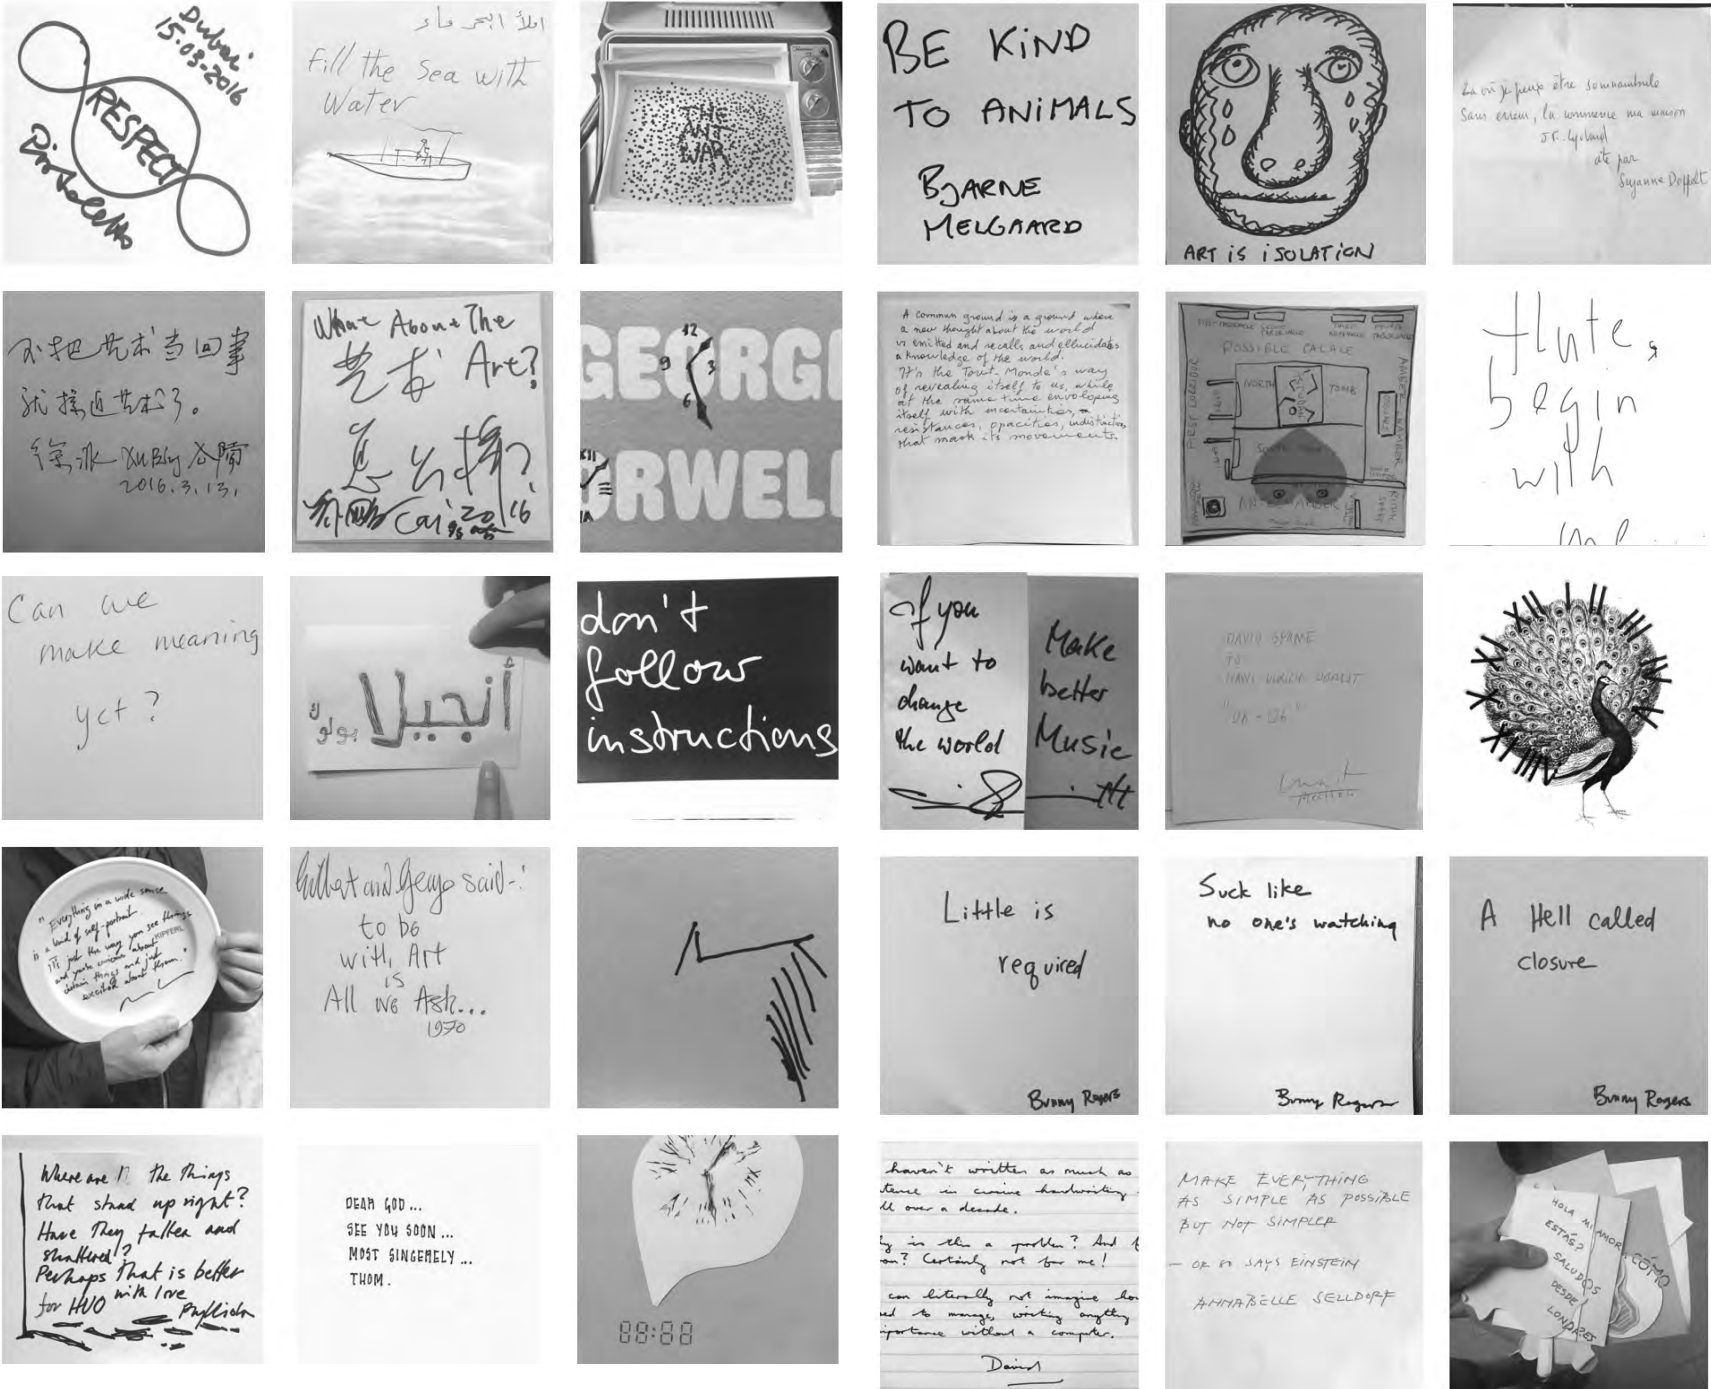 Dubai
15.03-2016
RESPECT
Pistoletto
املأ البحر ماء
Fill the Sea with
Water
THE
ANT
WAR
BE KIND
TO ANIMALS
BJARNE
MELGAARD
ART is iSOLATION
Là où je peux être somnambule
Sans erreur, là commence ma maison
J.F. Lyotard
cité par
Suzanne Doppelt
不把艺术当回事
就接近艺术了。
徐冰 Xu Bing
2016.3.13.
What About The
艺术 Art?
怎么搞?
Cai 2016
12
9 3
6
GEORG
ORWELL
A common ground is a ground where
a new thought about the world
is emitted and recalls and ellucidates
a knowledge of the world.
It's the Tout-Monde's way
of revealing itself to us, while
at the same time enveloping
itself with uncertainties,
resistances, opacities, indistinctions
that mark its movements.
POSSIBLE PALACE
NORTH TOMB
FIRST CORRIDOR
flute,
begin
with
me
Can we
make meaning
yet?
أنجيلا
بولوك
don't
follow
instructions
If you
want to
change
the world
Make
better
Music
DAVID BYRNE
TO
HANS ULRICH OBRIST
"Everything in a wide sense
is a kind of self-portrait.
It's just the way you see things
and you're curious about
certain things and just
excited about them."
KIPFERL
Gilbert and George said-:
to be
with Art
is
All we Ask...
1970
Little is
required
Bunny Rogers
Suck like
no one's watching
Bunny Rogers
A Hell called
closure
Bunny Rogers
Where are the things
that stand up right?
Have They fallen and
shattered?
Perhaps that is better
with love
for HUO Phyllida
DEAR GOD...
SEE YOU SOON...
MOST SINCERELY...
THOM.
88:88
haven't written as much as
tence in cursive handwriting
ll over a decade.
y is this a problem? And
on? Certainly not for me!
can literally not imagine how
ed to manage writing anything
mportance without a computer.
David
MAKE EVERYTHING
AS SIMPLE AS POSSIBLE
BUT NOT SIMPLER
— OR SO SAYS EINSTEIN
ANNABELLE SELLDORF
HOLA MI AMOR, CÓMO
ESTÁS?
SALUDOS
DESDE
LONDRES